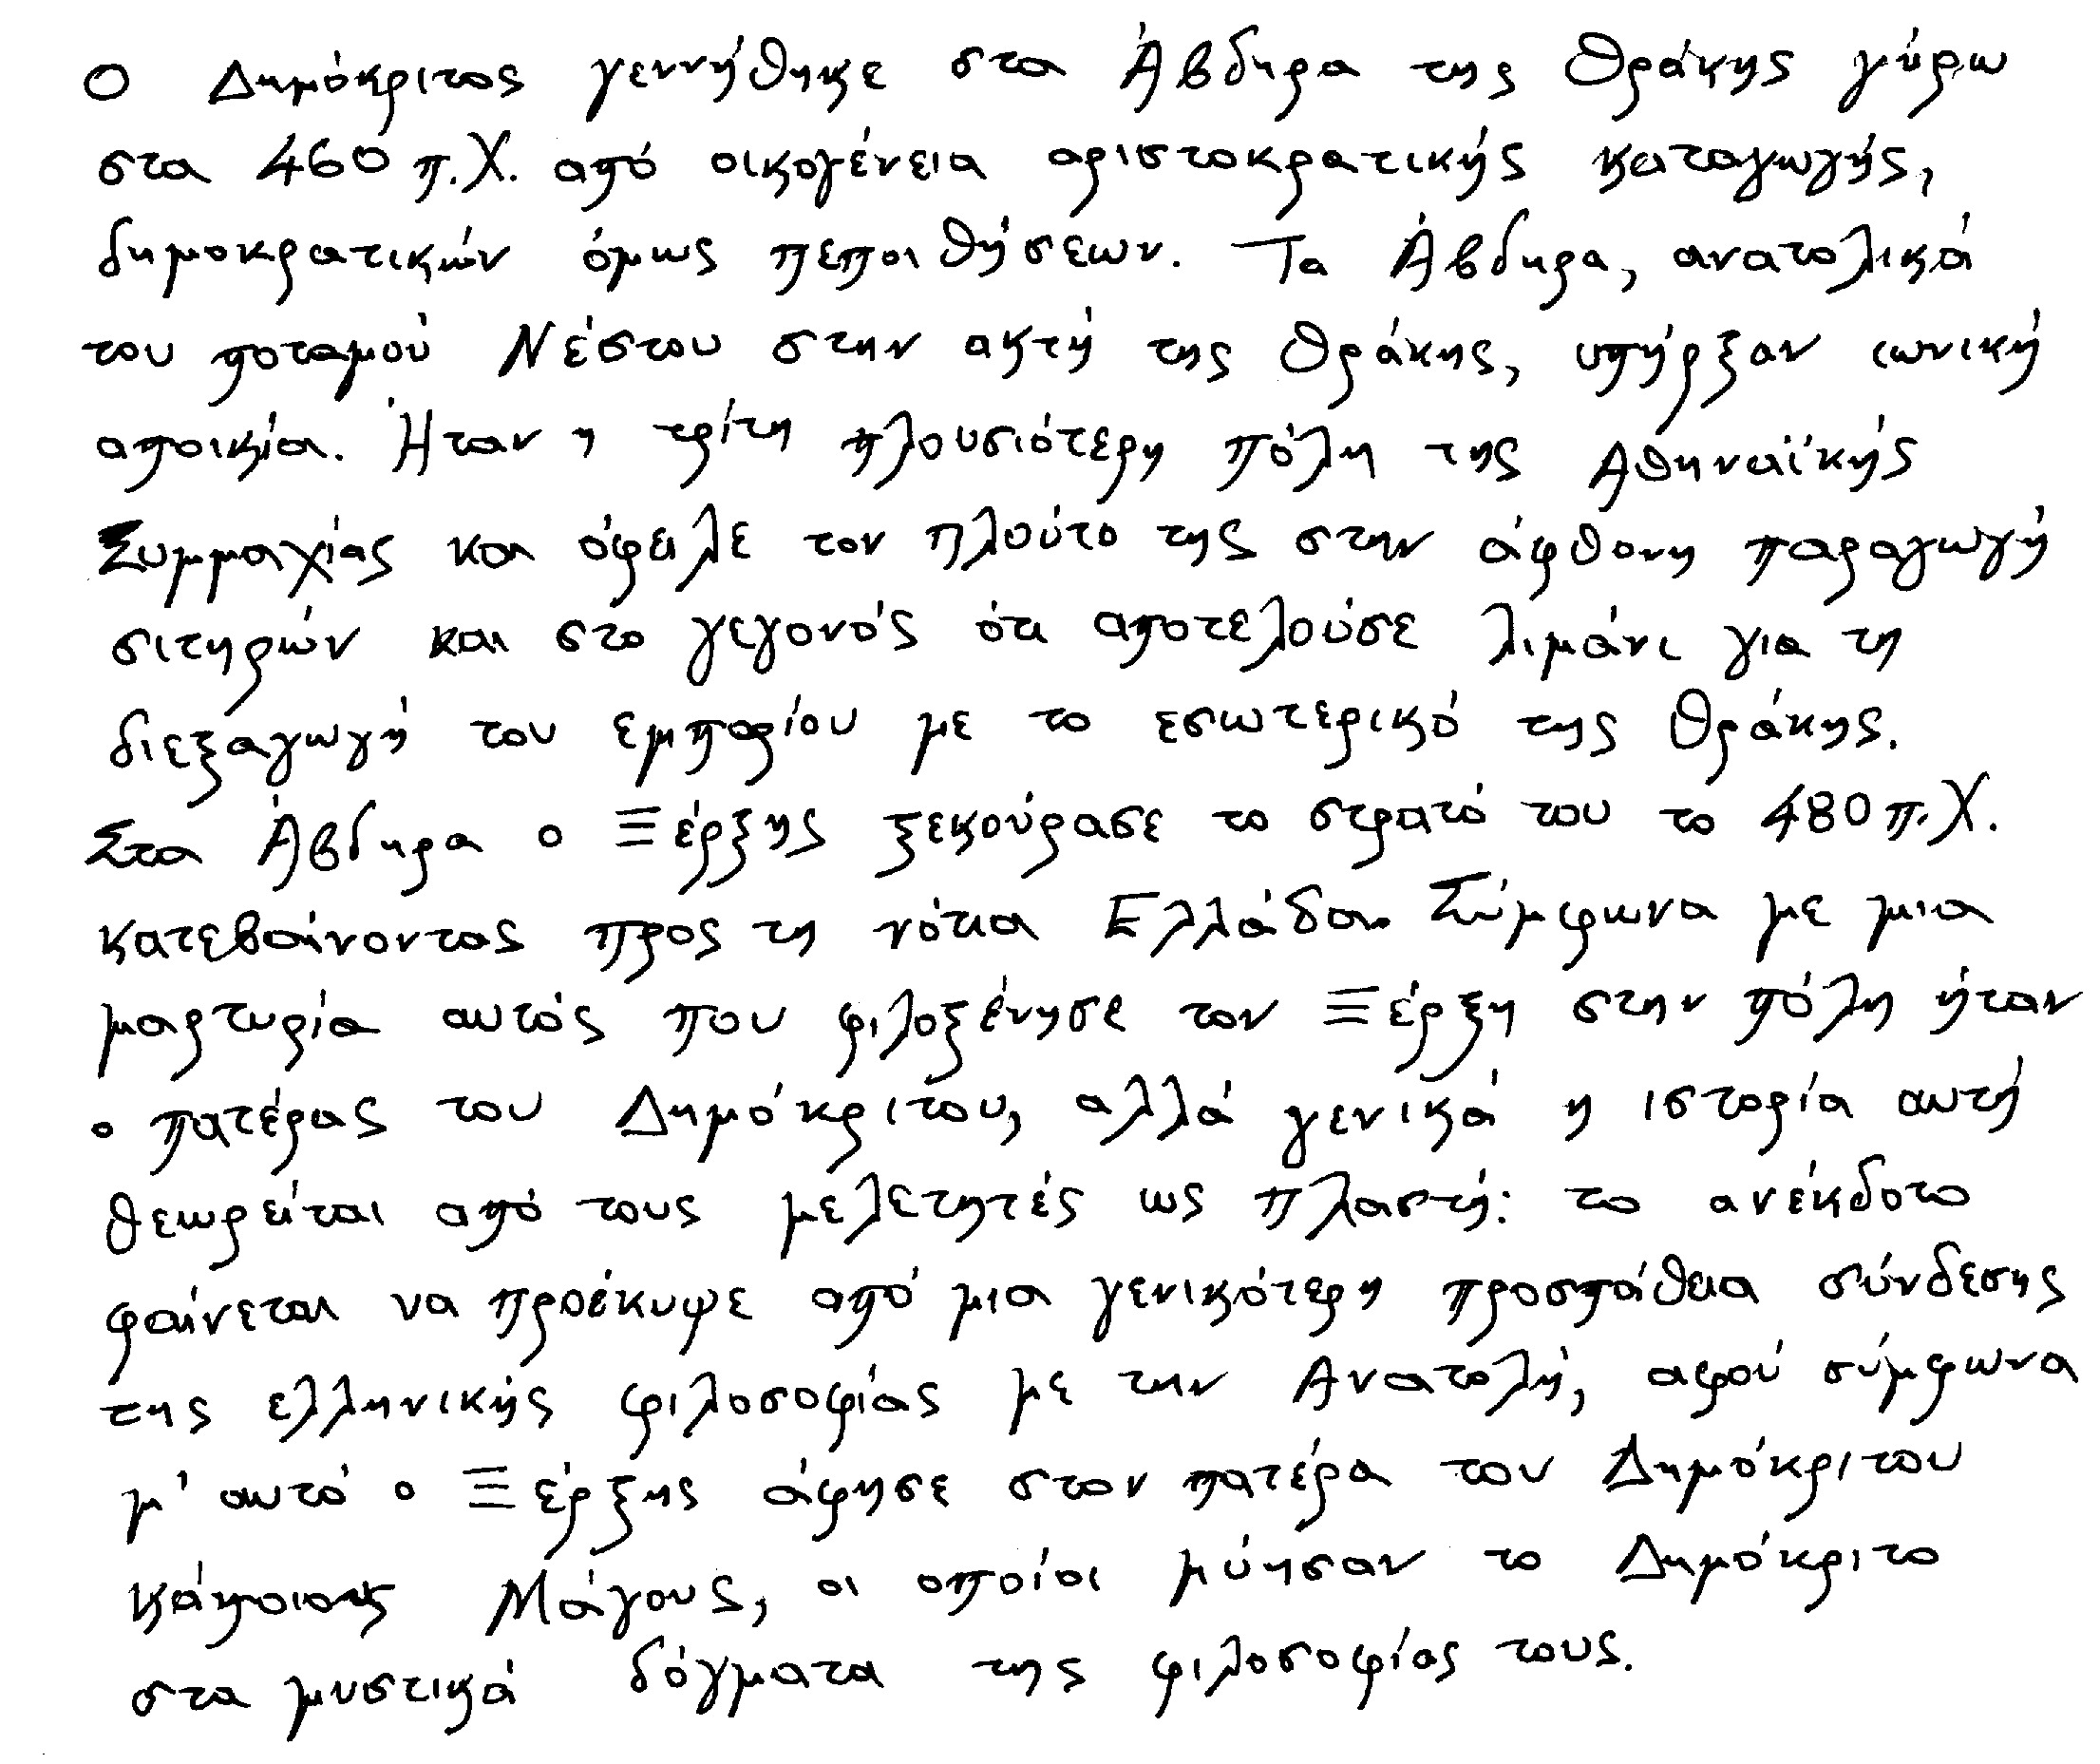 Ο Δημόκριτος γεννήθηκε στα Άβδηρα της Θράκης γύρω
στα 460 π.Χ. από οικογένεια αριστοκρατικής καταγωγής,
δημοκρατικών όμως πεποιθήσεων. Τα Άβδηρα, ανατολικά
του ποταμού Νέστου στην ακτή της Θράκης, υπήρξαν ιωνική
αποικία. Ήταν η τρίτη πλουσιότερη πόλη της Αθηναϊκής
Συμμαχίας και όφειλε τον πλούτο της στην άφθονη παραγωγή
σιτηρών και στο γεγονός ότι αποτελούσε λιμάνι για τη
διεξαγωγή του εμπορίου με το εσωτερικό της Θράκης.
Στα Άβδηρα ο Ξέρξης ξεκούρασε το στρατό του το 480 π.Χ.
κατεβαίνοντας προς τη νότια Ελλάδα. Σύμφωνα με μια
μαρτυρία αυτός που φιλοξένησε τον Ξέρξη στην πόλη ήταν
ο πατέρας του Δημόκριτου, αλλά γενικά η ιστορία αυτή
θεωρείται από τους μελετητές ως πλαστή: το ανέκδοτο
φαίνεται να προέκυψε από μια γενικότερη προσπάθεια σύνδεσης
της ελληνικής φιλοσοφίας με την Ανατολή, αφού σύμφωνα
μ' αυτό ο Ξέρξης άφησε στον πατέρα του Δημόκριτου
κάποιους Μάγους, οι οποίοι μύησαν το Δημόκριτο
στα μυστικά δόγματα της φιλοσοφίας τους.